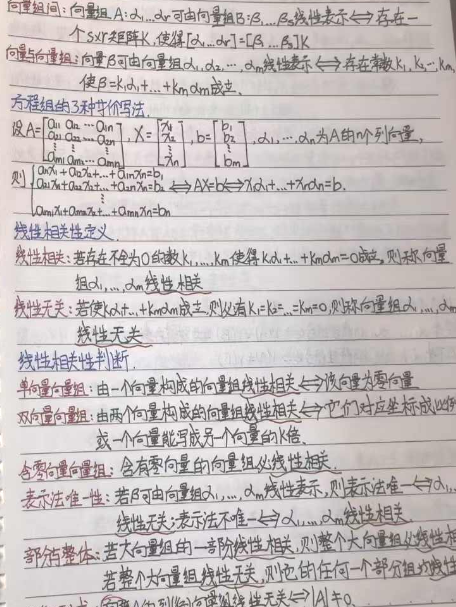 向量组间：向量组A：α₁…αr可由向量组B：β₁…βs线性表示⟺存在一
个s×r矩阵K，使得[α₁…αr]=[β₁…βs]K
向量与向量组：向量β可由向量组α₁,α₂,…αm线性表示⟺存在常数k₁,k₂…km,
使β=k₁α₁+…+kmαm成立.
方程组的3种等价写法.
设A=[a₁₁ a₁₂…a₁n
a₂₁ a₂₂…a₂n
⋮
am₁ am₂…amn], X=[x₁
x₂
⋮
xn], b=[b₁
b₂
⋮
bm], α₁,…αn为A的n个列向量,
则{a₁₁x₁+a₁₂x₂+…+a₁nxn=b₁
a₂₁x₁+a₂₂x₂+…+a₂nxn=b₂⟺AX=b⟺x₁α₁+…+xnαn=b.
⋮
am₁x₁+am₂x₂+…+amnxn=bm
线性相关性定义.
线性相关：若存在不全为0的数k₁,…,km使得k₁α₁+…+kmαm=0成立,则称向量
组α₁,…,αm线性相关
线性无关：若使k₁α₁+…+kmαm成立,则必有k₁=k₂=…=km=0,则称向量组α₁,…,αm
线性无关
线性相关性判断.
单向量向量组：由一个向量构成的向量组线性相关⟺该向量为零向量
双向量向量组：由两个向量构成的向量组线性相关⟺它们对应坐标成比例
或一个向量能写成另一个向量的k倍.
含零向量向量组：含有零向量的向量组必线性相关.
表示法唯一性：若β可由向量组α₁,…,αm线性表示,则表示法唯一⟺α₁,…
线性无关;表示法不唯一⟺α₁,…,αm线性相关.
部分与整体：若大向量组的一部分线性相关,则整个大向量组必线性相
若整个大向量组线性无关,则它的任何一个部分组必线性
向量组线性无关⟺|A|≠0